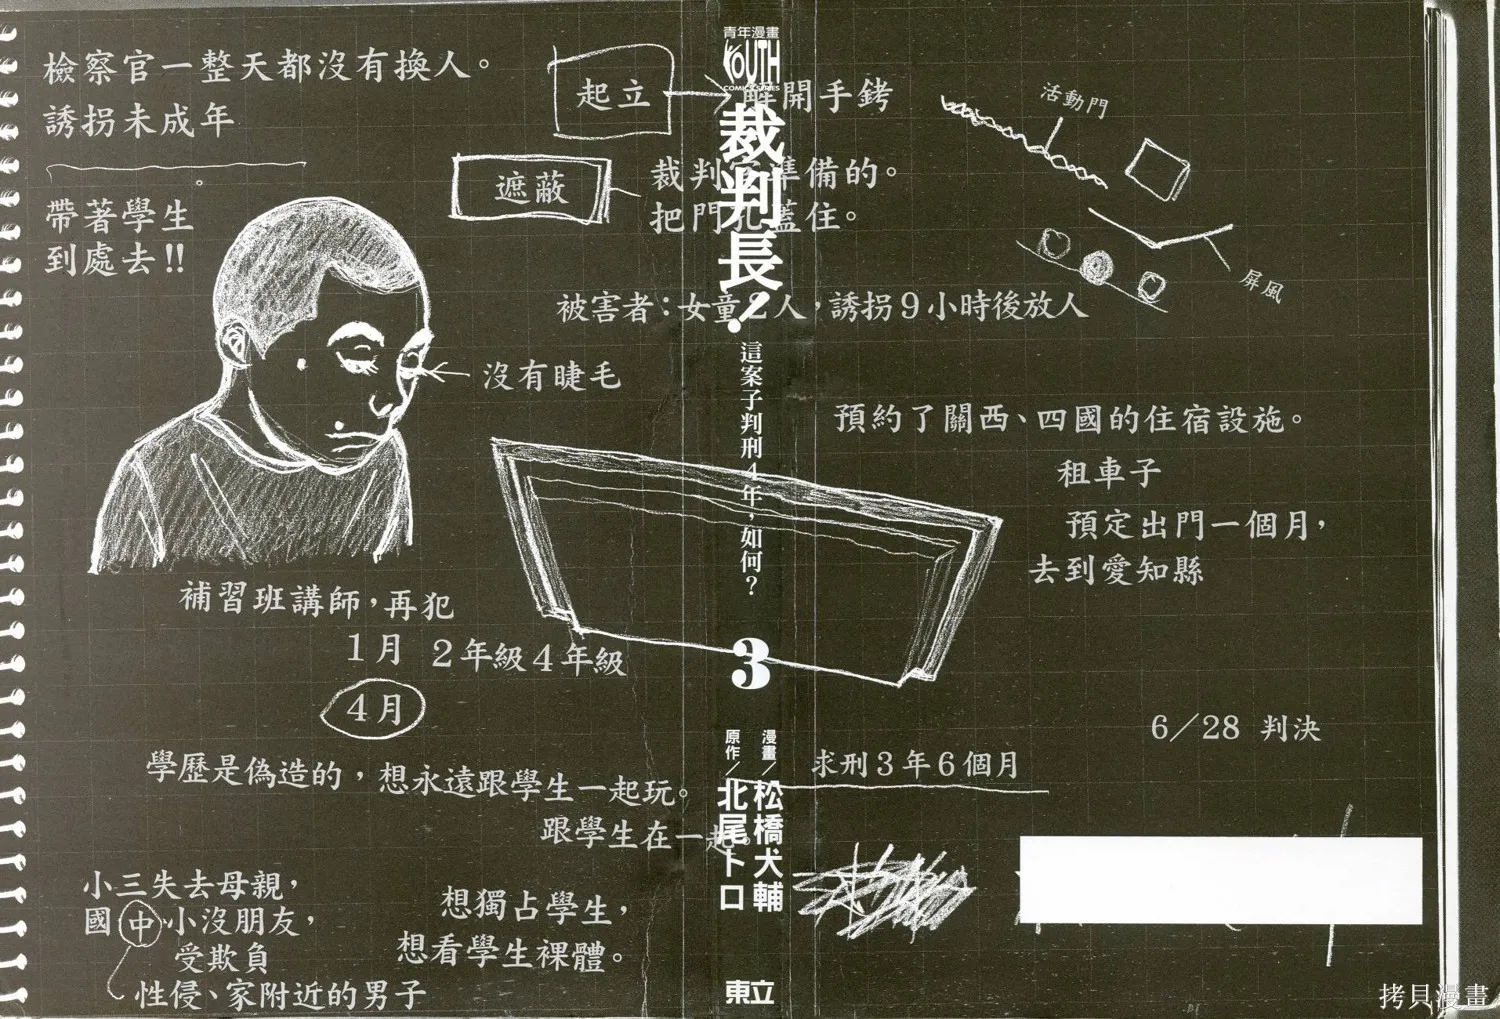 檢察官一整天都沒有換人。
誘拐未成年
帶著學生
到處去!!
起立
解開手銬
遮蔽
裁判官準備的。
把門孔蓋住。
活動門
屏風
被害者：女童2人，誘拐9小時後放人
沒有睫毛
預約了關西、四國的住宿設施。
租車子
預定出門一個月，
去到愛知縣
補習班講師，再犯
1月 2年級4年級
4月
6／28 判決
求刑3年6個月
學歷是偽造的，想永遠跟學生一起玩。
跟學生在一起。
小三失去母親，
國中小沒朋友，
受欺負
性侵、家附近的男子
想獨占學生，
想看學生裸體。
青年漫畫
YOUTH
COMICS SERIES
裁判長！
這案子判刑4年，如何？
3
漫畫／松橋犬輔
原作／北尾トロ
東立
拷貝漫畫